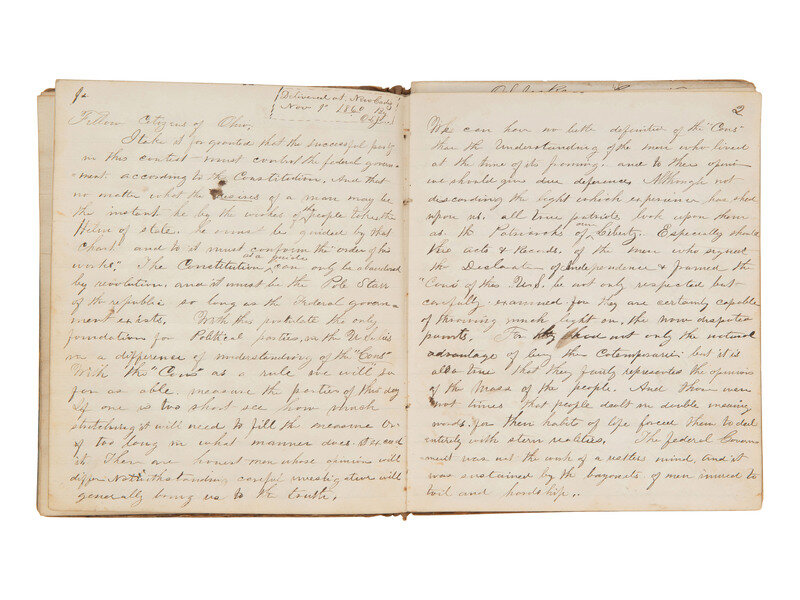 Delivered at New
Nov 1st 1860
Fellow Citizens of Ohio,
I take it for granted that the successful party
in this contest must control the federal govern-
ment according to the Constitution, And that
no matter what the desires of a man may be
the instant he by the wishes of the people takes the
Helm of state, he must be guided by that
chart, and to it must conform the "order of his
works". The Constitution as a guide can only be abandoned
by revolution, and it must be the Pole Star
of the republic so long as the Federal govern-
ment exists. With this postulate the only
foundation for Political parties, in the U. States
is a difference of understanding of the "Cons"
With the "Cons" as a rule we will so
far as able, measure the parties of this day
If one is too short see how much
stretching it will need to fill the measure Or
if too long in what manner does it exceed
it. There are honest men whose opinions will
differ Notwithstanding careful investigation will
generally bring us to the truth.
2
We can have no better definition of the "Cons"
than the Understanding of the men who lived
at the time of its forming. and to their opinion
we should give due deference. Although not
discarding the light which experience has shed
upon us. all true patriots look upon them
as the Patriarchs of our Liberty. Especially should
the acts & Records, of the men who signed
the Declaration of Independence & framed the
"Cons" of these U.S. be not only respected but
carefully examined for they are certainly capable
of throwing much light on, the now disputed
points. For they had not only the natural
advantage of being the Cotemporaries but it is
also true that they fairly represented the opinions
of the Mass of the people. And those were
not times that people dealt in double meaning
words. for their habits of life forced them to deal
entirely with stern realities. The federal Govern
ment was not the work of a restless mind, and it
was sustained by the bayonets of men inured to
toil and hardship.